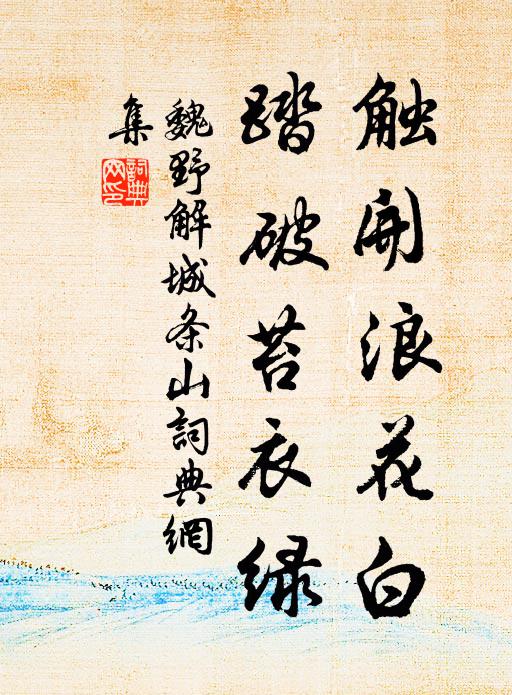 触开浪花白
踏破苔衣绿
魏野解城条山詞典網
集
詞典網印